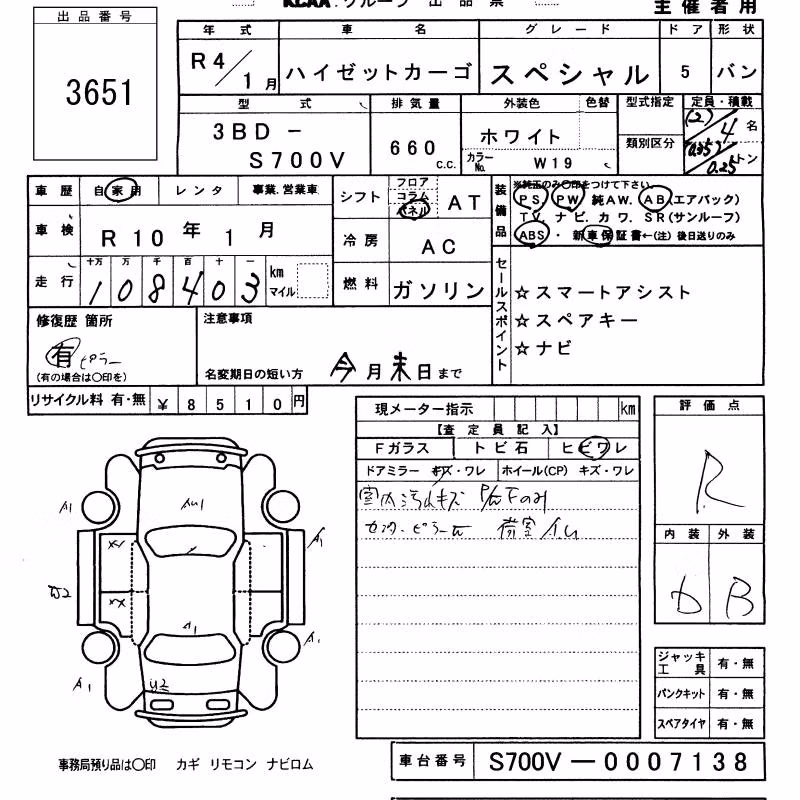 KCAA.グループ 出品票
主催者用
出品番号
3651
年式 車名 グレード ドア 形状
R4/1月 ハイゼットカーゴ スペシャル 5 バン
型式 排気量 外装色 色替 型式指定 定員・積載
3BD-
S700V
660 c.c.
ホワイト
カラーNo. W19
類別区分
(2)/4名
0.25トン
車歴 自家用 レンタ 事業.営業車
車検 R10年1月
走行 十万 万 千 百 十 一
108403 km
マイル
シフト フロア コラム パネル AT
冷房 AC
燃料 ガソリン
装備品
※純正のみ○印をつけて下さい。
PS PW 純AW. AB(エアバック)
TV. ナビ. カワ. SR(サンルーフ)
ABS・新車保証書←(注)後日送りのみ
セールスポイント
☆スマートアシスト
☆スペアキー
☆ナビ
修復歴 箇所
有 ピラー
(有の場合は○印を)
注意事項
名変期日の短い方 今月末日まで
リサイクル料 有・無 ¥8510円
現メーター指示 km
【査定員記入】
Fガラス トビ石 ヒビワレ
ドアミラー キズ・ワレ ホイール(CP) キズ・ワレ
室内汚れキズ
評価点
R
内装 外装
D B
A1
A1
A1
A1
A1
XX
XX
ジャッキ工具 有・無
パンクキット 有・無
スペアタイヤ 有・無
事務局預り品は○印 カギ リモコン ナビロム
車台番号 S700V-0007138